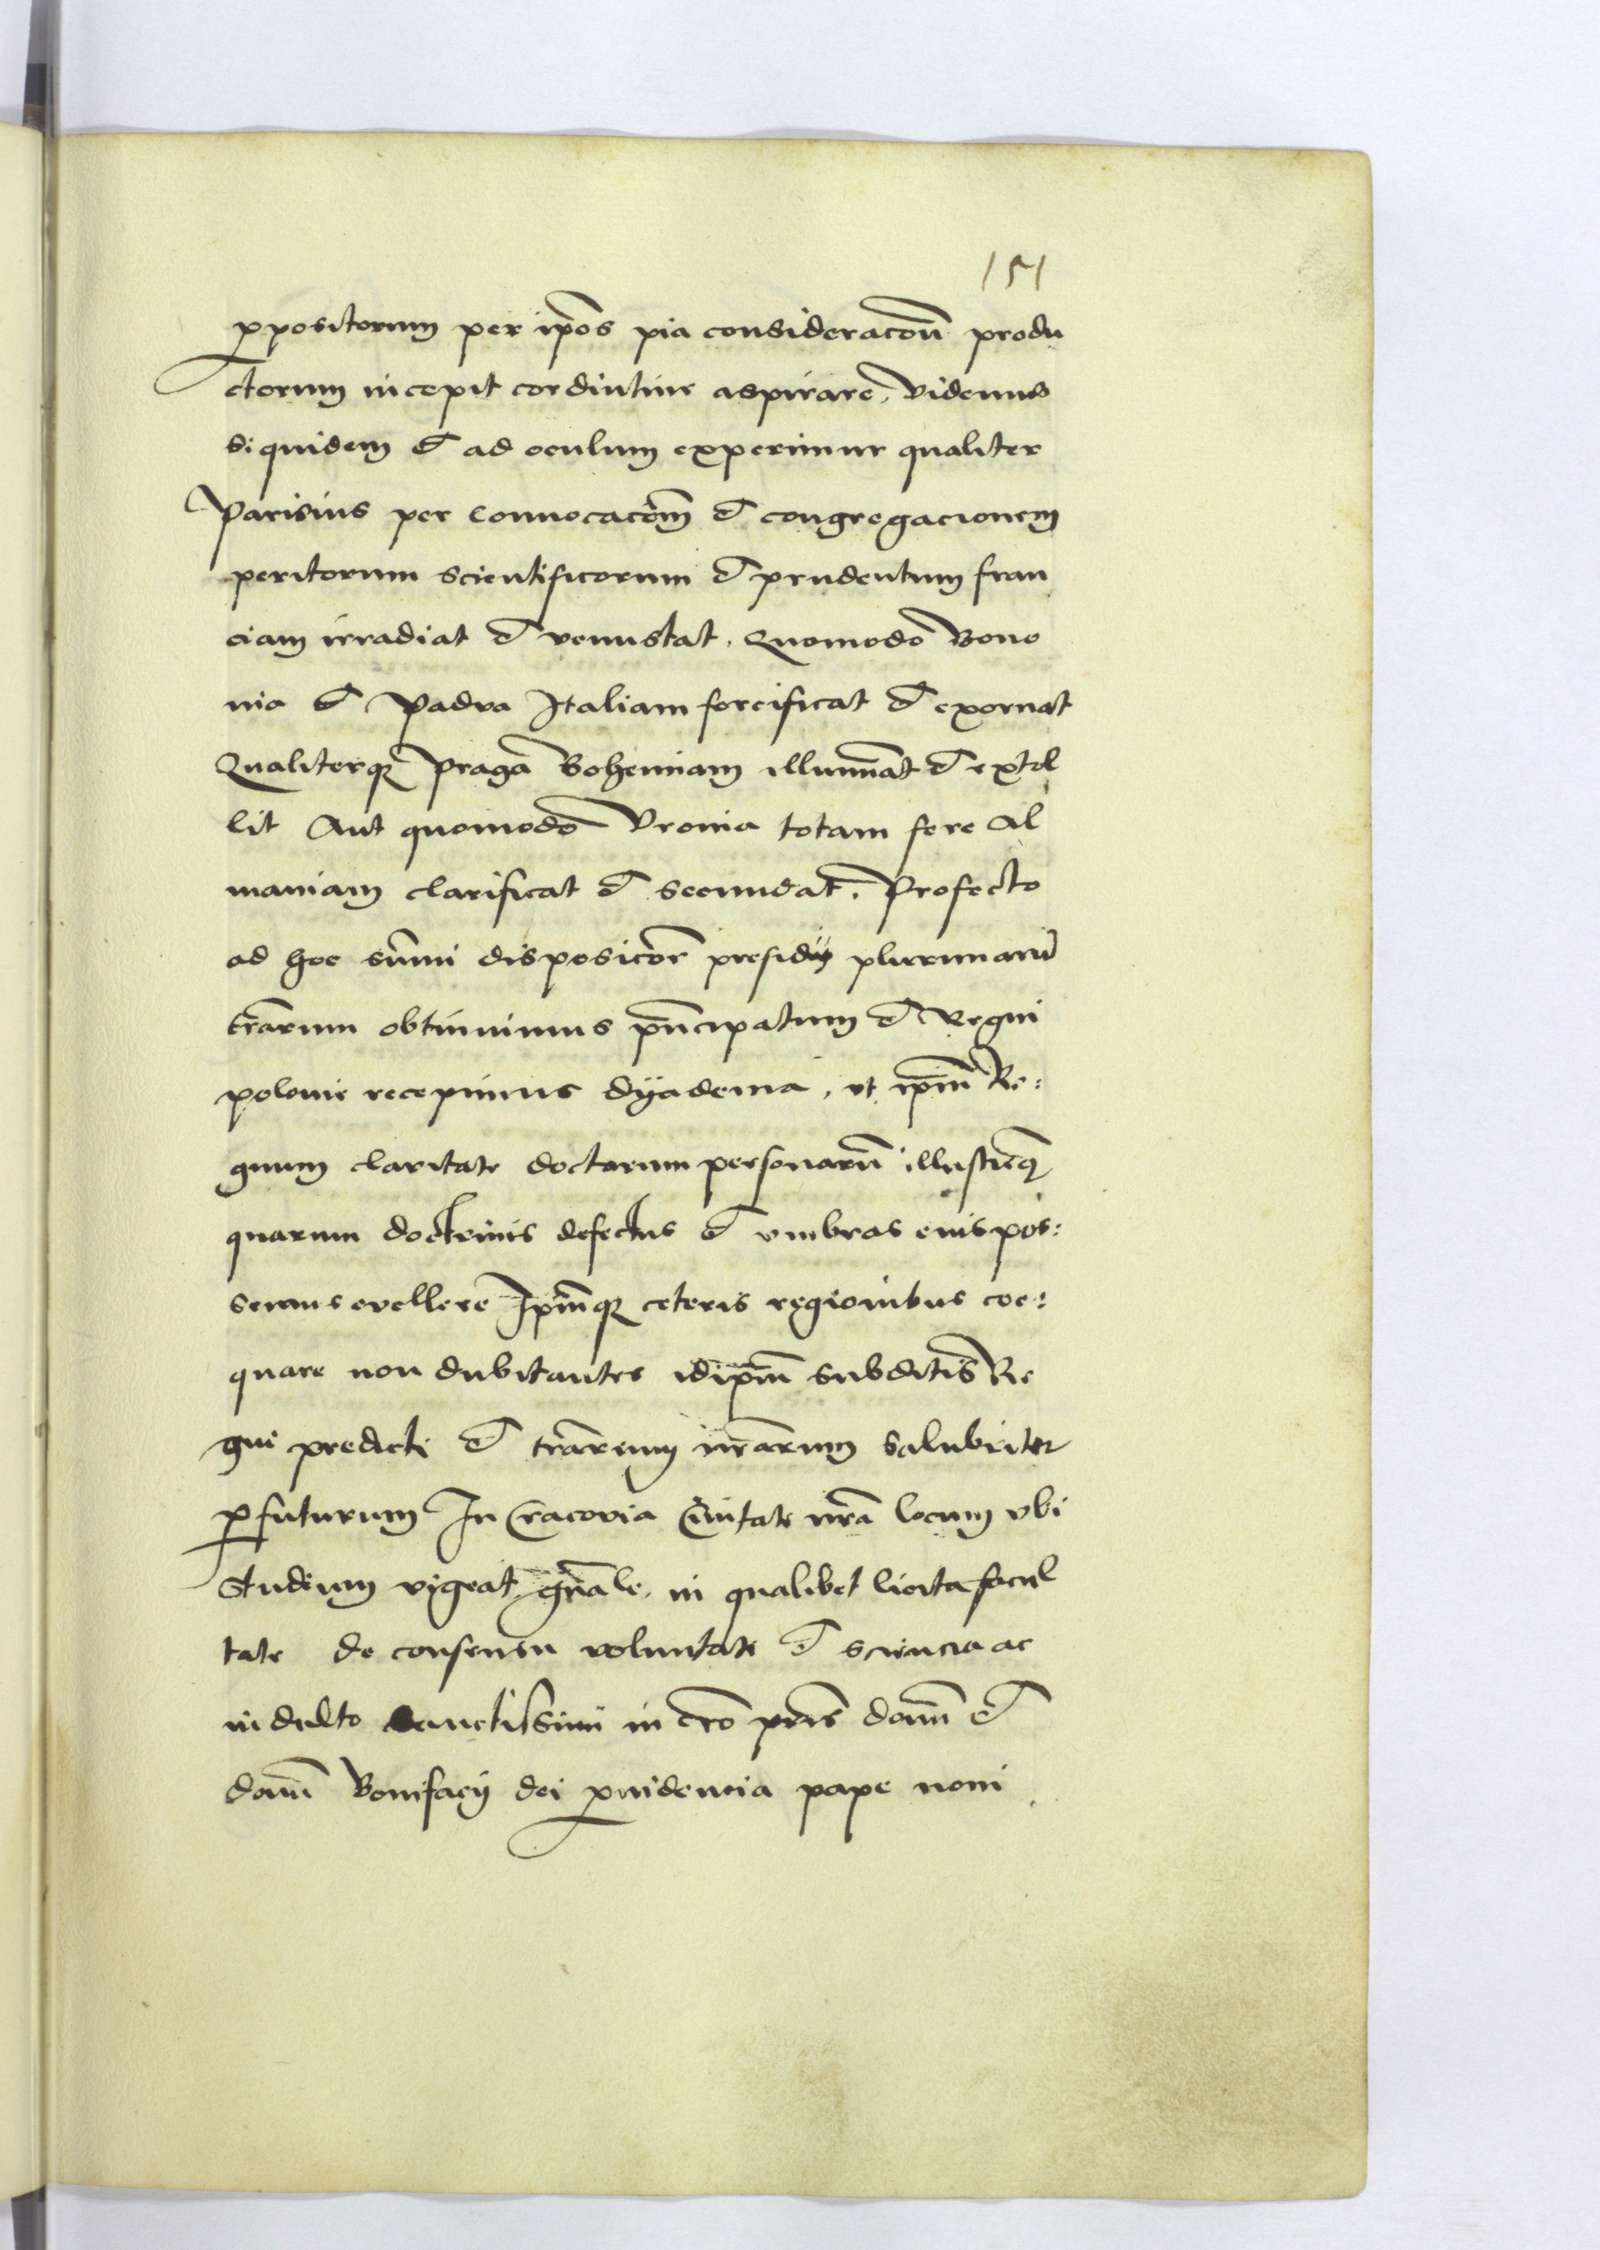 151
ꝓpositorum per ip̄os pia consideracōn̄ produ
ctorum incepit cor diutine aspirare, Videmus
siquidem et ad oculum experimur qualiter
Parisius per convocacōm̄ et congregacionem
peritorum scientificorum et prudentum fran
ciam irradiat et venustat. Quomodo Bono
nia et Padva Italiam forcificat et exornat
Qualiterqꝫ Praga Bohemiam illumīat et extol
lit Aut quomodo Vxonia totam fere Al
maniam clarificat et secundat. Profecto
ad hoc sūmi disposicōe presidij plurimarū
tr̄arum obtinuimus pn̄cipatum et Regni
polonie recepimus dyadema, vt ip̄m̄ Re:
gnum claritate doctarum personarū illustret
quarum doctrinis defectus et vmbras eius pos:
semus evellere Ip̄m̄qꝫ ceteris regionibus coe:
quare non dubitantes id ip̄m̄ subditis Re
gni predicti et tr̄arum nr̄arum salubriter
ꝓfuturum In Cracovia Civitate nr̄a locum vbi
Studium vigeat gn̄ale, in qualibet licita facul
tate de consensu voluntate et sciencia ac
indulto Sanctissimi in cr̄o pr̄is domī et
domī Bonifacij dei ꝓvidencia pape noni